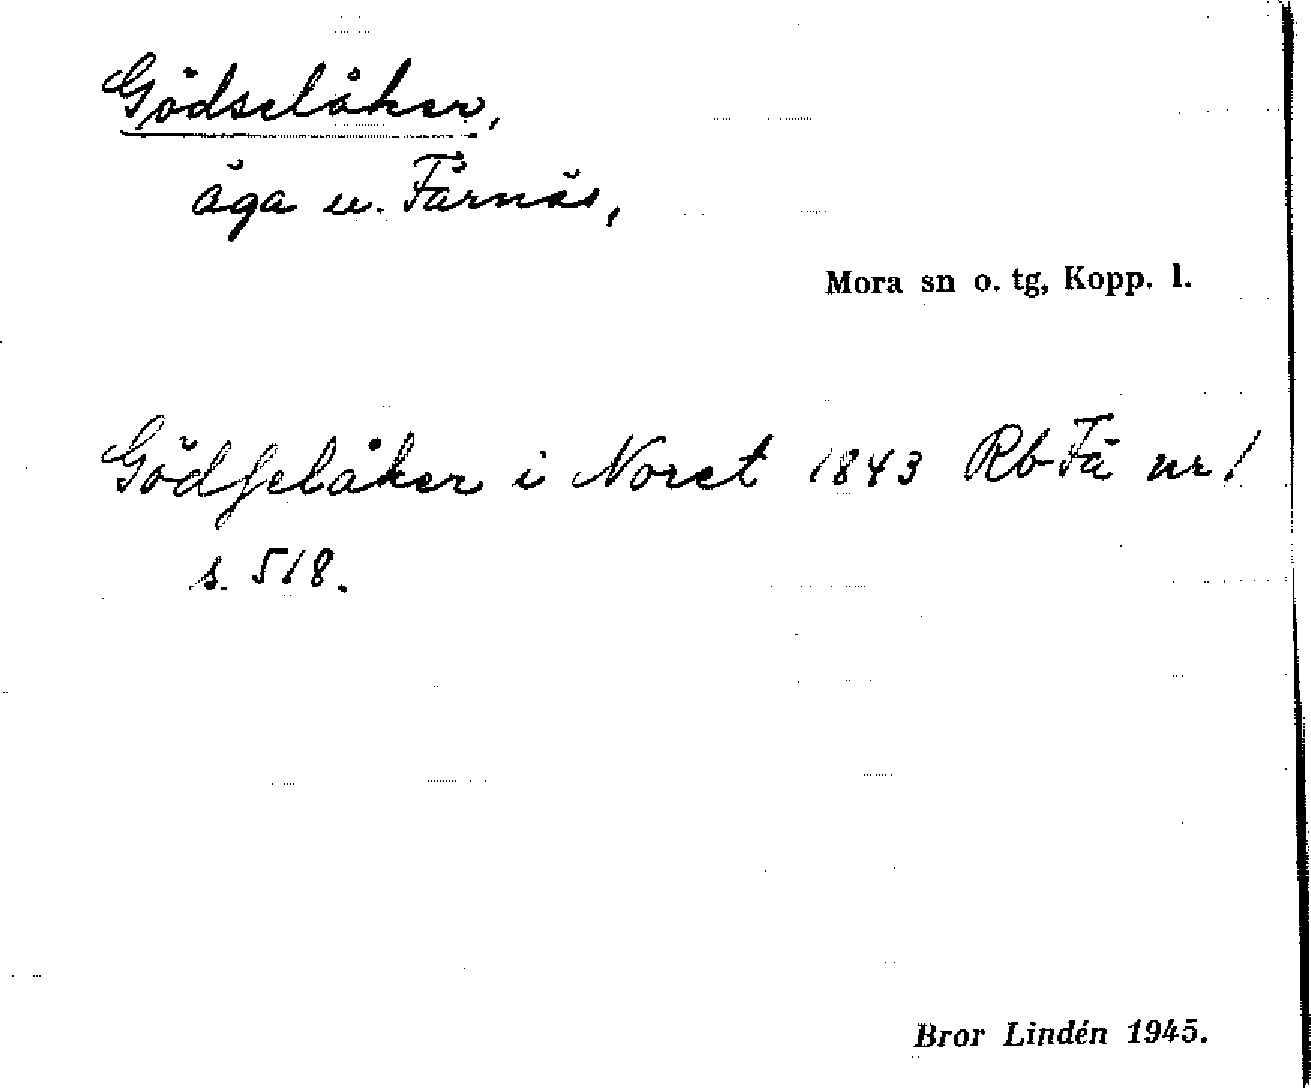 Gödselåker,
äga u. Färnäs,
Mora sn o. tg, Kopp. l.
Gödſelåker i Noret 1843 Rb-Fä nr 1
s. 518.
Bror Lindén 1945.